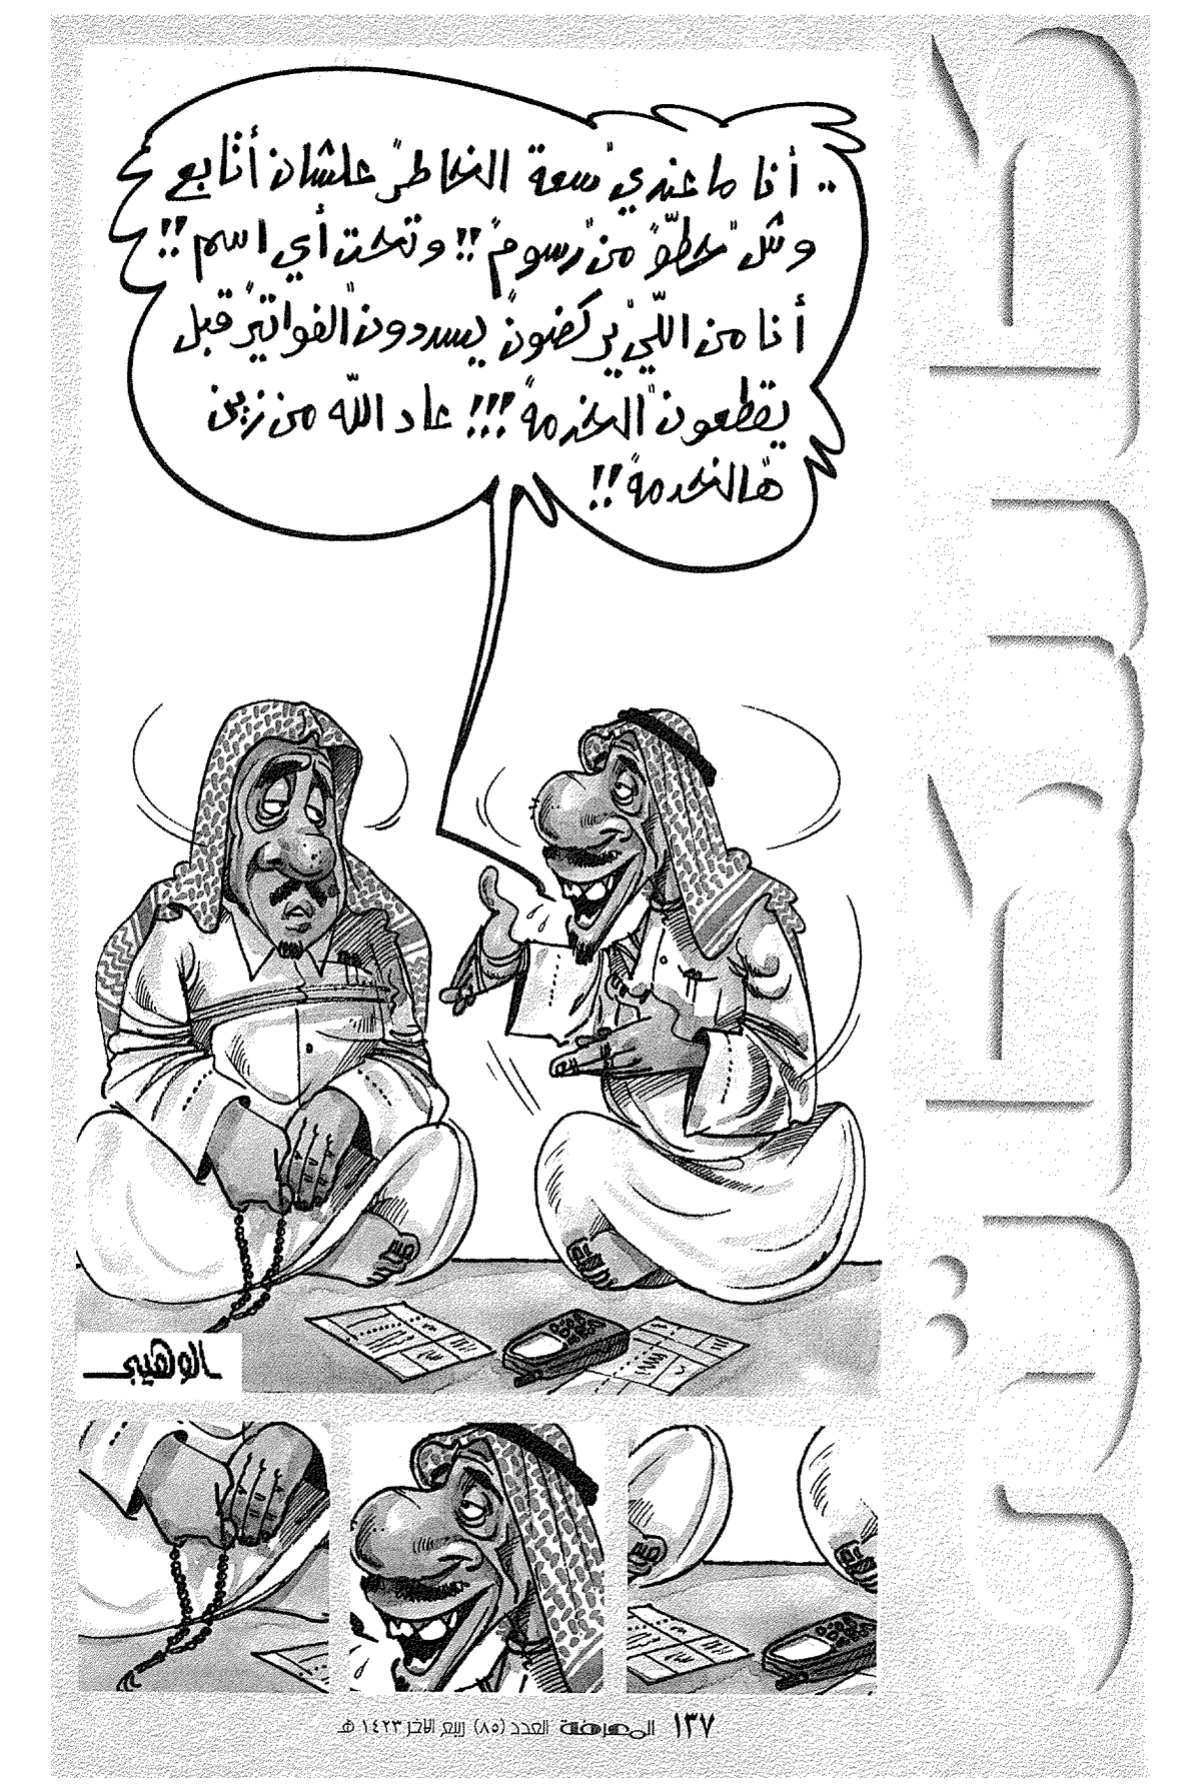 .. أنا ما عندي "سعة الخاطر" علشان أتابع
وش "تحطّو" من "رسوم"!! وتحت أي اسم!!
أنا من اللّي "يركضون" يسددون "الفواتير" قبل
يقطعون "الخدمة"!!! عاد اللّه من زين
"هالخدمة"!!
الوهيبي
١٣٧ المعرفة العدد (٨٥) ربيع الآخر ١٤٢٣ هـ